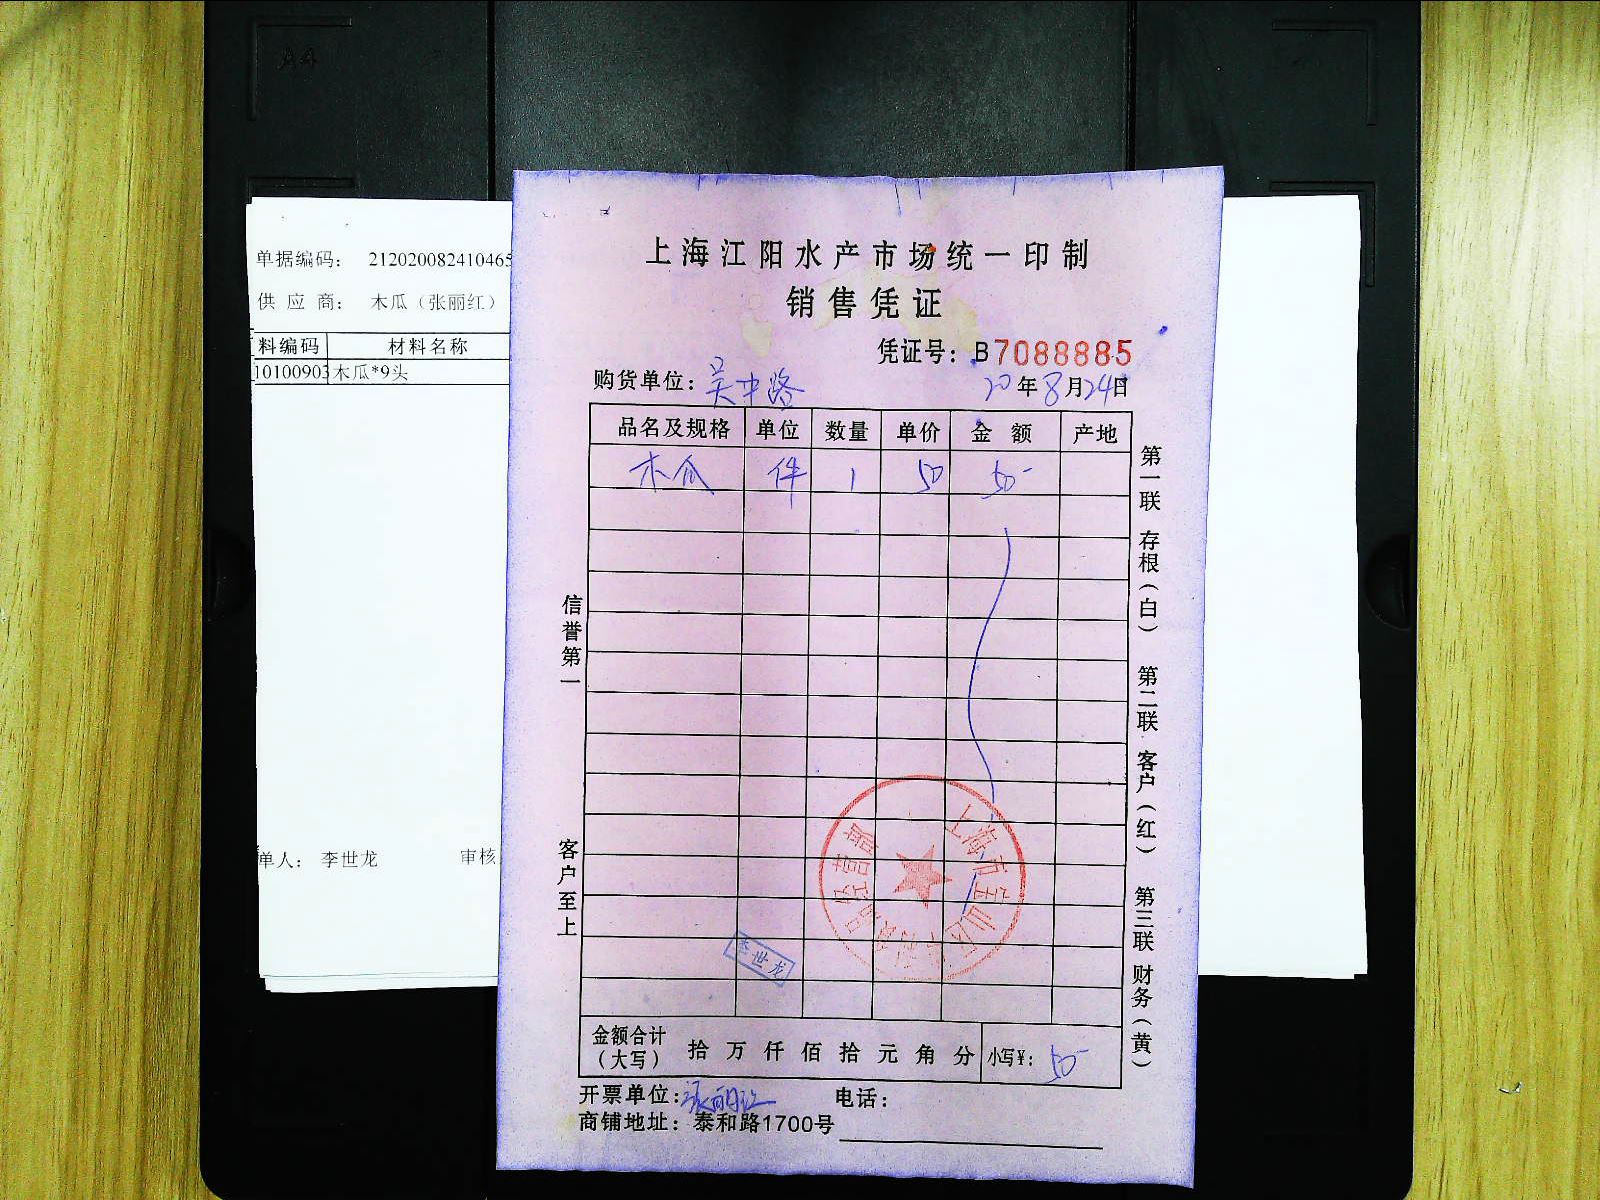 A4
单据编码： 212020082410465
供 应 商： 木瓜（张丽红）
料编码 材料名称
10100903 木瓜*9头
单人： 李世龙 审核
上海江阳水产市场统一印制
销售凭证
凭证号：B7088885
购货单位：吴中路 20年8月24日
品名及规格 单位 数量 单价 金 额 产地
木瓜 件 1 50 50-
信誉第一
客户至上
第一联 存根（白） 第二联 客户（红） 第三联 财务（黄）
李世龙
金额合计（大写） 拾 万 仟 佰 拾 元 角 分 小写¥：50-
开票单位：张丽红 电话：
商铺地址：泰和路1700号